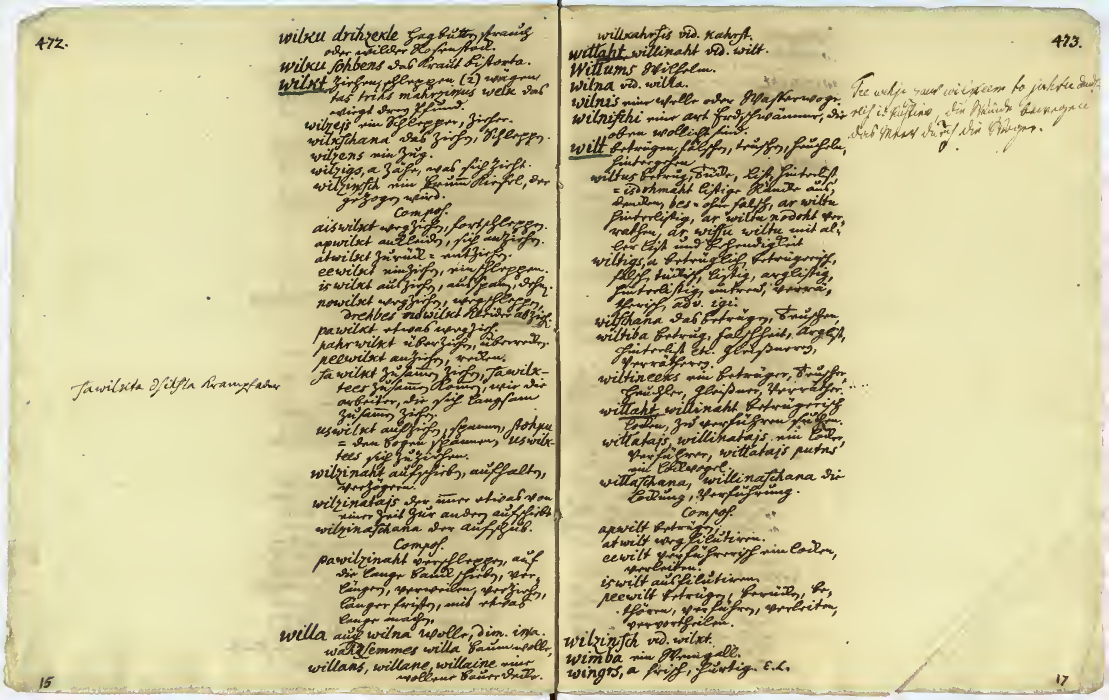 472.
wilku drihzekle Hagbutten strauch
oder wilder Rosenstock.
wilku sohbens das Kraut bistorta.
wilkt ziehen, schleppen (2) wägen
tas trihs mahrzinus welk das
wiegt drey Pfund.
wilzejs ein Schlepper, Zieher.
wilkschana das Ziehen, Schleppen
wilzens ein Zug.
wilzigs, a Zähe, was sich zieht.
wilzinsch ein Brumm Kiesel, der
gezogen wird.
Compos.
aiswilkt wegziehen, fortschleppen.
apwilkt ankleiden, sich anziehen.
atwilkt zurück = entziehen.
eewilkt einziehen, einschleppen.
iswilkt ausziehen,
nowilkt wegziehen, wegschleppen,
drehbes nowilkt Kleider abzieh.
pawilkt etwas wegzieh.
pahrwilkt überziehen, überreden
peewilkt anziehen,
sawilkt zusamm ziehen, sawilk-
tees zusamm komen, wie die
arbeiter, die sich langsam
zusamm ziehen.
sawilkta Dsihsla Krampfader
uswilkt aufziehen, spannen, stohpu
= den bogen spannen, uswilk-
tees sich zuziehen.
wilzinaht aufschieben, aufhalten,
verzögern.
wilzinatajs der immer etwas von
einer Zeit zur andern aufschiebt
wilzinaschana der Aufschub.
Compos.
pawilzinaht verschleppen, auf
die lange Banck schieben, ver-
längern, verweilen, verziehen,
länger fristen, mit etwas
lange machen.
willa auch wilna Wolle, dim. ina.
wahzsemmes willa Baumwolle,
willans, willane, willaine eine
wollene Bauer Decke.
15
473.
willkahrsis vid. kahrst.
willaht, willinaht vid. wilt.
Willums Wilhelm.
wilna vid. willa.
wilnis eine Welle oder Wasserwoge.
die Winde bewegen
das Meer durch die Wogen.
wilnischi eine art Erdschwämme, die
oben wollicht sind.
wilt betrügen, fälschen, täuschen, heucheln,
hintergehen
wiltus betrug, Tücke, List, Hinterlist
= isdohmaht listige Ränke aus
dencken, bes = ohne falsch, ar wiltu
hinterlistig, ar wiltu nodoht ver,
rathen, ar wissu wiltu mit al,
ler List und Behendigkeit
wiltigs, a betrüglich, betrügerisch,
falsch, tückisch, listig, arglistig,
hinterlistig, untreu, verrä,
therisch, adv. igi.
wilschana das betrügen, Teuschen,
wiltiba betrug, Falschheit, Arglist,
Hinterlist etc. Gleisnerey,
Verrätherey.
wiltineeks ein betrüger, Teuscher
Heuchler, Gleisner, Verräther.
willaht, willinaht betrügerisch
locken, zu verführen suchen.
willatajs, willinatajs, ein Locker,
Verführer, willatajs putns
ein Lockvogel
willaschana, willinaschana die
Lockung, Verführung.
Compos.
apwilt betrügen,
atwilt weg filutiren.
eewilt verführerisch einlocken,
verleiten.
iswilt ausfilutiren.
peewilt betrügen, berücken, be,
thören, verführen, verleiten,
vervortheilen.
wilzinsch vid. wilkt.
wimba ein Wemgall.
wingrs, a frisch, hurtig. E.L.
17